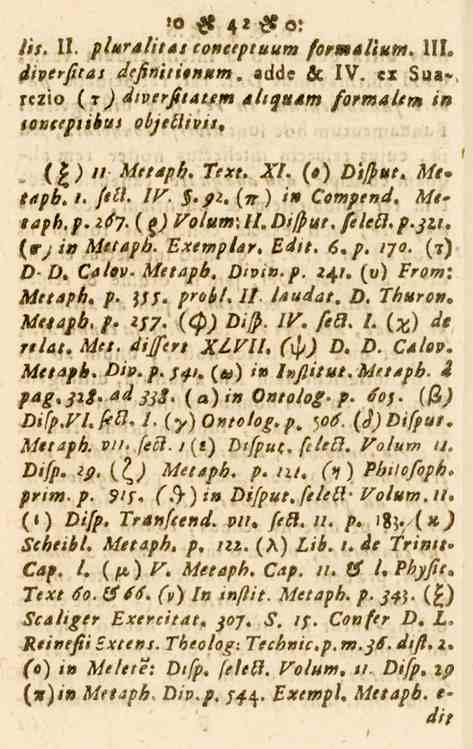 :o ❧ 42 ❧ o:
lis. II. pluralitas conceptuum formalium. III.
diversitas definitionum. adde & IV. ex Sua-
rezio (τ) diversitatem aliquam formalem in
conceptibus objectivis.
(ξ) 11 Metaph. Text. XI. (ο) Disput. Me-
taph. 1. sect. IV. §. 92. (π) in Compend. Me-
taph. p. 267. (ρ) Volum: II. Disput. select. p. 321.
(σ) in Metaph. Exemplar. Edit. 6. p. 170. (τ)
D. D. Calov. Metaph. Divin. p. 241. (υ) From:
Metaph. p. 355. probl. II. laudat. D. Thuron.
Metaph. p. 257. (φ) Disp. IV. sect. I. (χ) de
relat. Met. differt XLVII. (ψ) D. D. Calov.
Metaph. Div. p. 541. (ω) in Institut. Metaph. à
pag. 328. ad 338. (α) in Ontolog. p. 605. (β)
Disp. VI. sect. 1. (γ) Ontolog. p. 506. (δ) Disput.
Metaph. VII. sect. 1 (ε) Disput. select. Volum 11.
Disp. 29. (ζ) Metaph. p. 121. (η) Philosoph.
prim. p. 915. (ϑ) in Disput. select. Volum. 11.
(ι) Disp. Transcend. VII. sect. 11. p. 183. (κ)
Scheibl. Metaph. p. 122. (λ) Lib. 1. de Trinit.
Cap. 1. (μ) V. Metaph. Cap. 11. & 1. Physic.
Text 60. & 66. (ν) In instit. Metaph. p. 343. (ξ)
Scaliger Exercitat. 307. S. 15. Confer D. L.
Reinesii Extens. Theolog: Technic. p. m. 36. dist. 2.
(ο) in Meletē: Disp. select. Volum. 11. Disp. 29
(π) in Metaph. Div. p. 544. Exempl. Metaph. e-
dit